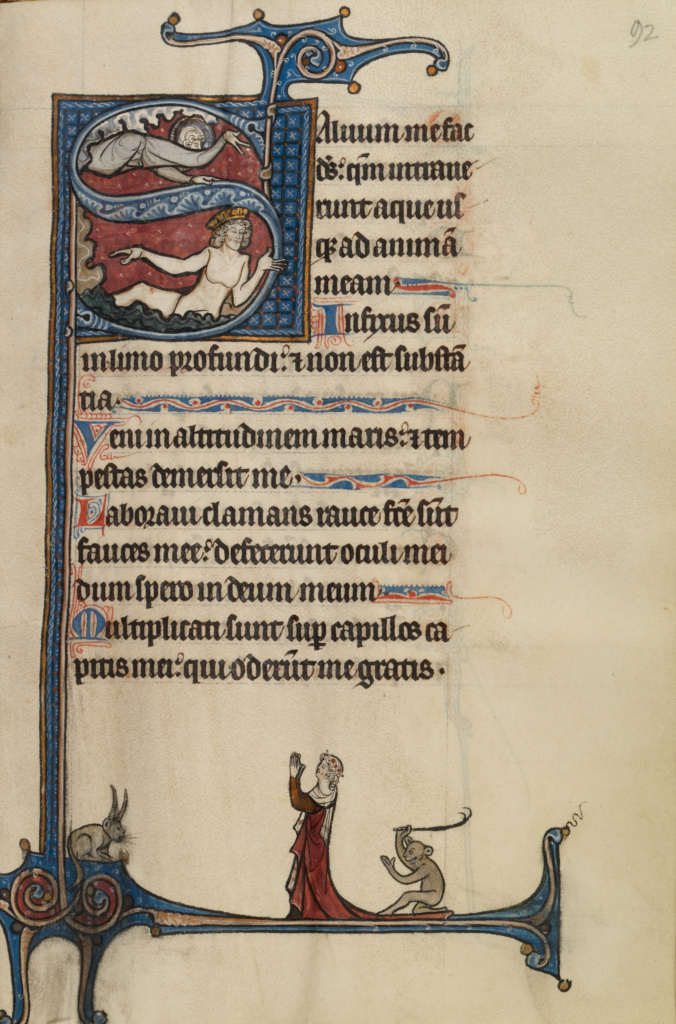 92
Aluum me fac
d̄s: q̄m intraue
runt aque us
q̨ ad animā
meam
Infixus sū
in limo profundi: ⁊ non est substā
tia.
Veni in altitudinem maris: ⁊ tem
pestas demersit me.
Laboraui clamans rauce fc̄e sūt
fauces mee: defecerunt oculi mei
dum spero in deum meum
Multiplicati sunt suꝑ capillos ca
pitis mei: qui oderūt me gratis.